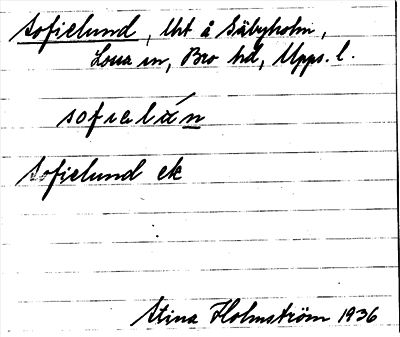 Sofielund, lht å Säbyholm,
Låssa sn, Bro hd, Upps. l.
sofialún
Sofielund ek
Stina Holmström 1936